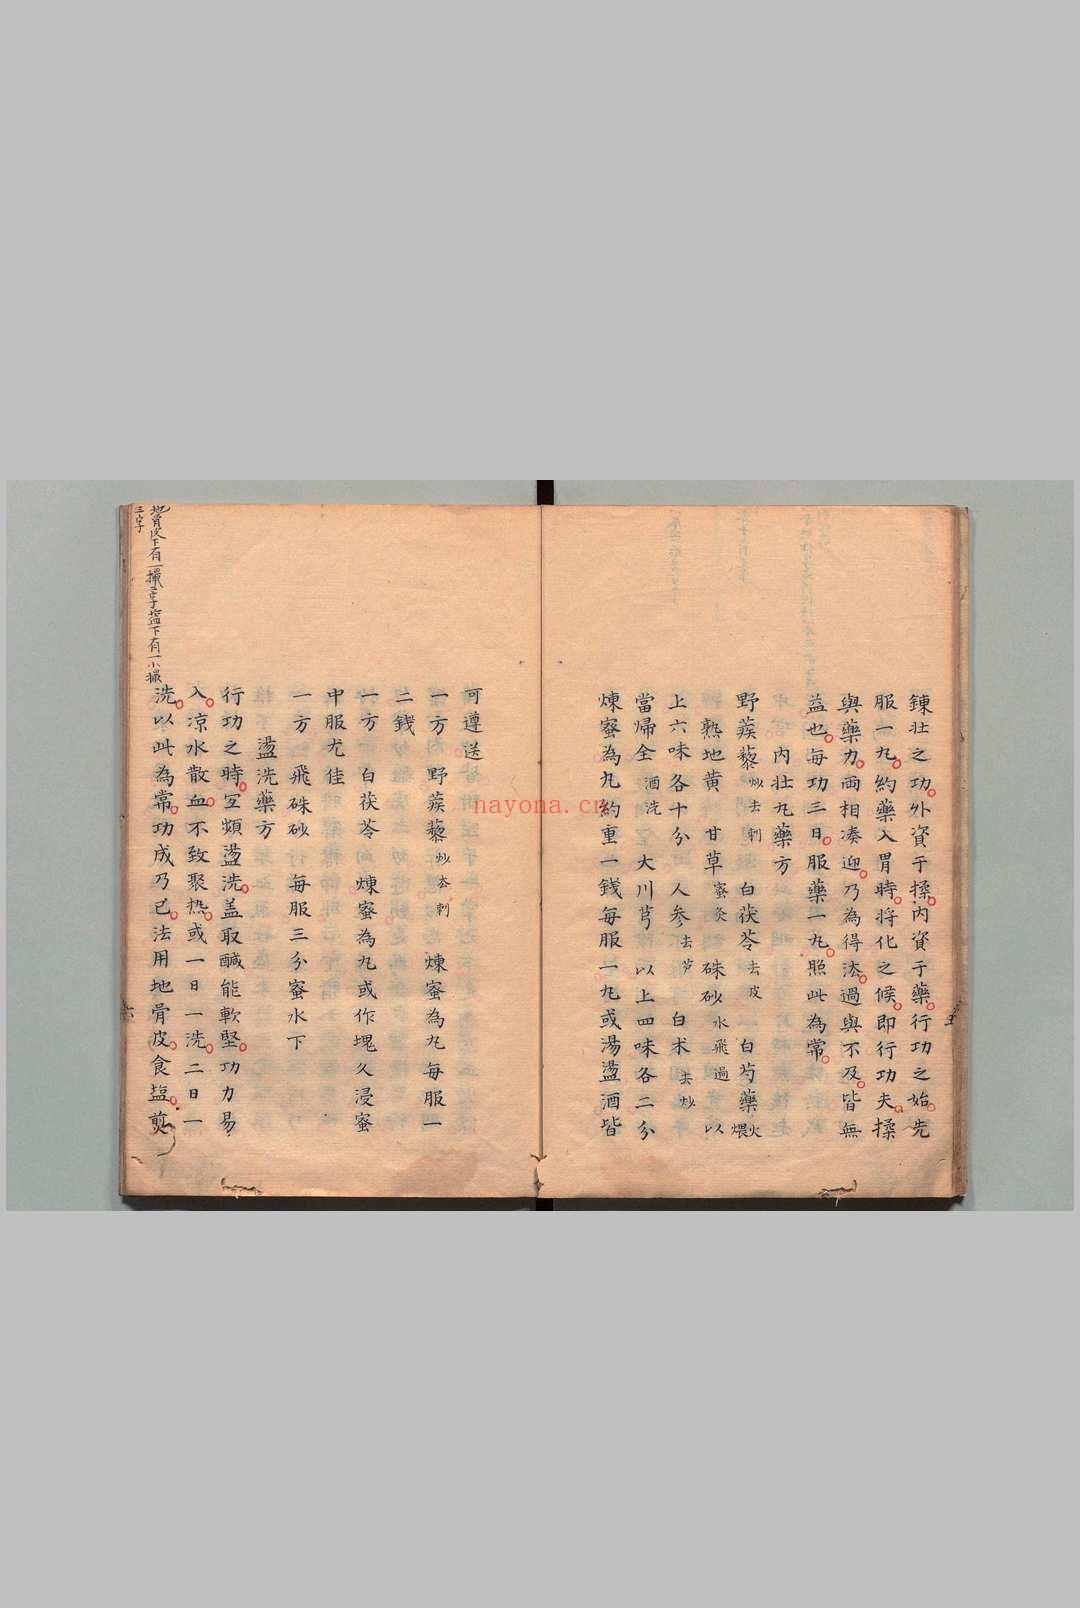 鍊壯之功外資于揉內資于藥行功之始先
服一丸約藥入胃時將化之候即行功夫揉
與藥力兩相凑迎乃為得法過與不及皆無
益也每功三日服藥一丸照此為常
內壯丸藥方
野蒺藜炒去刺 白茯苓去皮 白芍藥火煨
熟地黄 甘草蜜灸 硃砂水飛過 以
上六味各十分 人參去芦 白术去炒
當歸全酒洗 大川芎 以上四味各二分
煉蜜為丸約重一錢每服一丸或湯盪酒皆
五
可遵送
一方 野蒺藜炒去刺 煉蜜為丸每服一
二錢
一方 白茯苓 煉蜜為丸或作塊久浸蜜
中服尤佳
一方 飛硃砂 每服三分蜜水下
盪洗藥方
行功之時宜頻盪洗盖取鹹能軟堅功力易
入凉水散血不致聚热或一日一洗二日一
洗以此為常功成乃已法用地骨皮食塩煎
地骨皮下有一撮二字塩下有一小撮
三字
六
nayona.cn